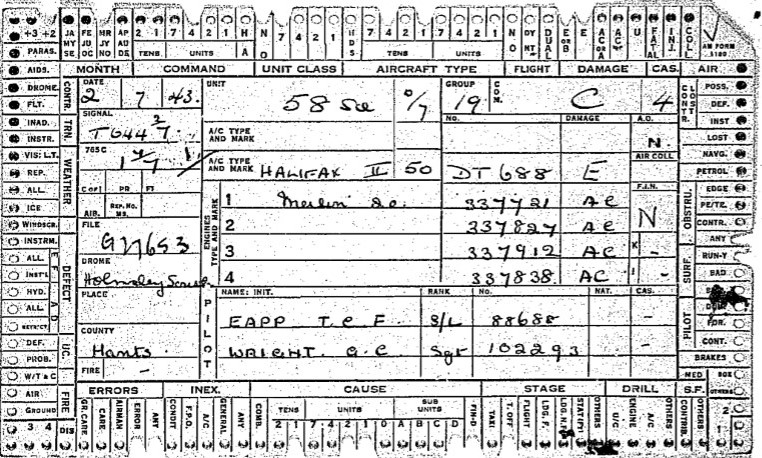 +3 +2 JA MY SE FE JU OC MR JY NO AP AU DE 2 1 7 4 2 1 H A N O 7 4 2 1 HDS 7 4 2 1 7 4 2 1 N O DY NT DUAL E OR B E AC OR A AC U FATAL INJ. COLL AM FORM
PARAS. TENS UNITS TENS UNITS
AIDS. MONTH COMMAND UNIT CLASS AIRCRAFT TYPE FLIGHT DAMAGE CAS. AIR
DROME CONTR. DATE 2 7 43. UNIT 58 Sq 0/7 GROUP 19 COM. C 4 CONTR. CL LOST POSS.
FLT. DEF.
INAD. TRN. SIGNAL T644 A/C TYPE AND MARK No. DAMAGE A.O. N. INST
INSTR. LOST
VIS: L.T. WEATHER 765 C A/C TYPE AND MARK HALIFAX II 50 DT 688 E AIR COLL NAVG.
REP. PETROL
ALL C of I PR FT ENGINES TYPE AND MARK 1 Merlin 20. 337721 AC F.I.N. N OBSTRU. EDGE
ICE AIR. REP. No. MS. PE/TE.
WINDSCR. FILE G27653 2 337827 AC CONTR.
INSTRM. 3 337912 AC K - ANY
ALL DEFECT DROME Holmsley South 4 337838. AC I - SURF. RUN-Y
INST'L BAD
HYD. PLACE PILOT NAME: INIT. RANK No. NAT. CAS.
ALL EAPP T.C.F. S/L 88688 - PILOT
RESTRICT. COUNTY Hants. FOR.
DEF. UC. WRIGHT. G.C Sgt 102293 - CONT.
PROB. FIRE - BRAKES
W/T & C ERRORS INEX. CAUSE STAGE DRILL MED S.F. BOX OTHERS
AIR FIRE GR. CARE CARE AIRMAN ERROR ANY CONDIT F.P.O. A/C GENERAL ANY COMB. TENS UNITS SUB UNITS FIN-D TAXI T. OFF FLIGHT LDG. F. LDG. N.F. STAT(P) OTHERS U/C ENGINE A/C OTHERS CONTRIB OTHERS
GROUND 2
3 4 DIS. 2 1 7 4 2 1 0 A B C D 1